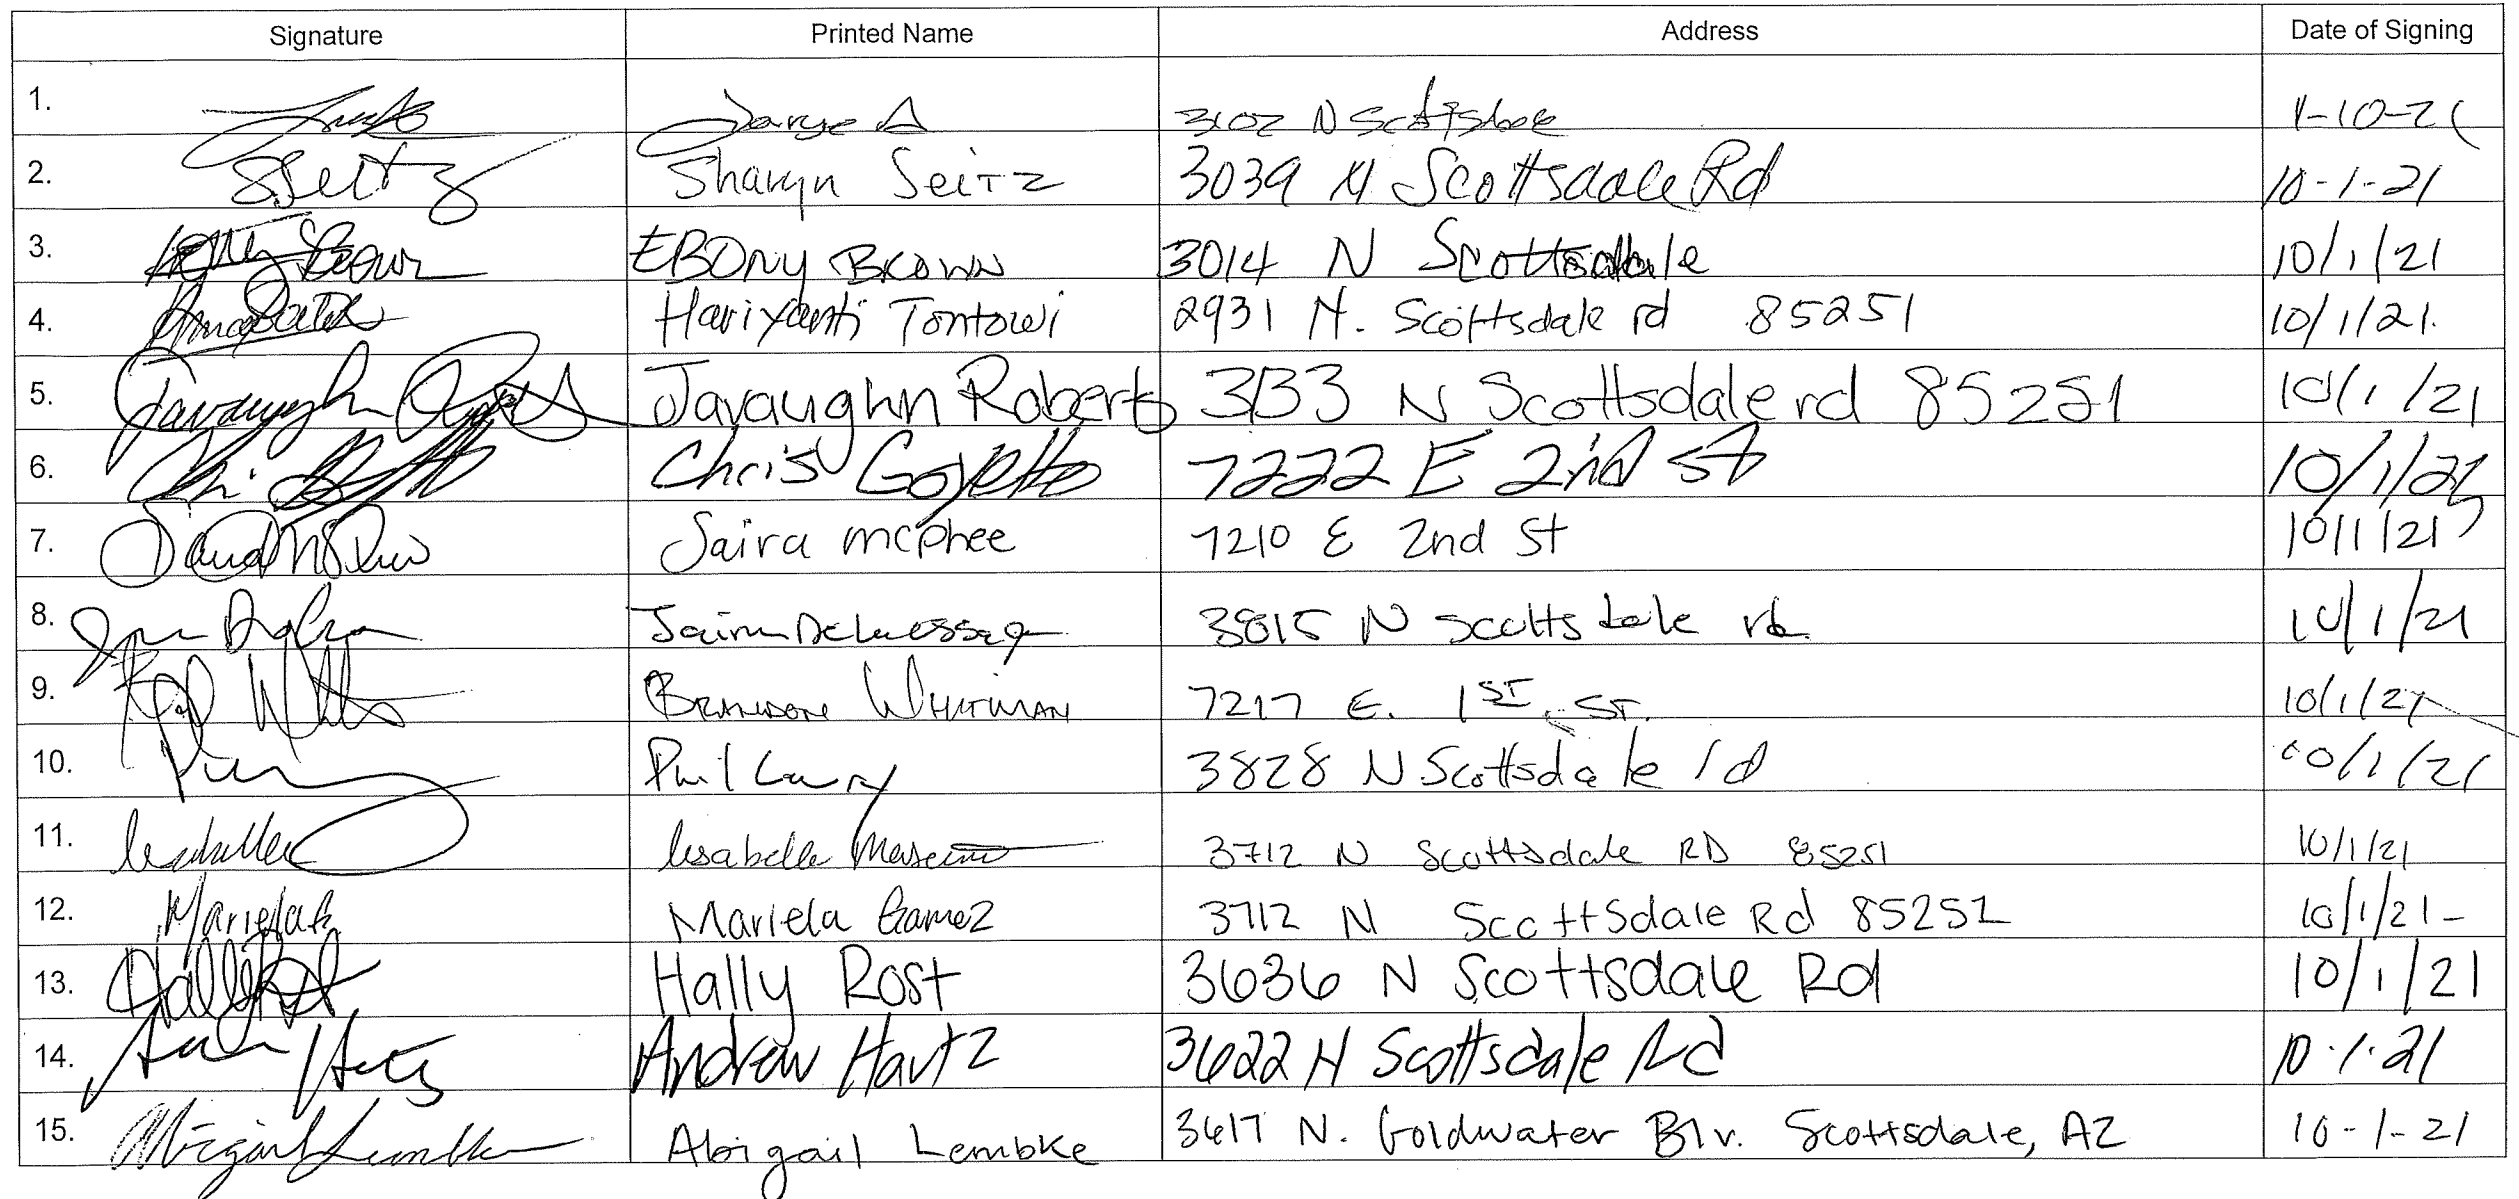 Signature Printed Name Address Date of Signing
1. 3102 N Scottsdale 1-10-21
2. SSeitz Sharyn Seitz 3039 N Scottsdale Rd 10-1-21
3. Brown EBONY BROWN 3014 N Scottsdale 10/1/21
4. Hariyanti Tontowi 2931 N. Scottsdale rd 85251 10/1/21.
5. Javaughn Roberts Javaughn Roberts 3133 N Scottsdale rd 85251 10/1/21
6. Chris Goyette 7222 E 2nd st 10/1/21
7. Saira mcphee 7210 E 2nd St 10/1/21
8. 3815 N scottsdale rd 10/1/21
9. BRANDON WHITMAN 7217 E. 1ST. ST. 10/1/21
10. Phil 3828 N Scottsdale rd 10/1/21
11. Isabelle 3712 N Scottsdale RD 85251 10/1/21
12. Mariela G Mariela Gamez 3712 N Scottsdale Rd 85251 10/1/21
13. Hally Rost 3636 N Scottsdale Rd 10/1/21
14. Andrew Hartz 3622 N Scottsdale Rd 10.1.21
15. Abigail Lembke Abigail Lembke 3617 N. Goldwater Blv. Scottsdale, AZ 10-1-21